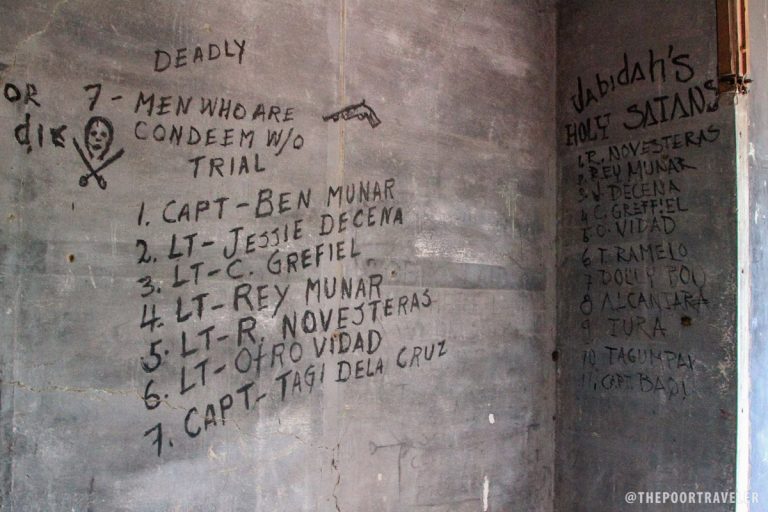 DEADLY
OR 7- MEN WHO ARE
die CONDEEM W/O
TRIAL
1. CAPT-BEN MUNAR
2. LT-JESSIE DECENA
3. LT-C. GREFIEL
4. LT-REY MUNAR
5. LT-R. NOVESTERAS
6. LT-OTRO VIDAD
7. CAPT-TAGI DELA CRUZ
Jabidah's
HOLY SATANS
1. R. NOVESTERAS
2. REY MUNAR
3. J. DECENA
4 C. GREFFIEL
5 O. VIDAD
6 T. RAMELO
7 DOLLY BOY
8 ALCANTARA
9 TURA
10 TAGUMPAY
11. CAPT. BADI
@THEPOORTRAVELER